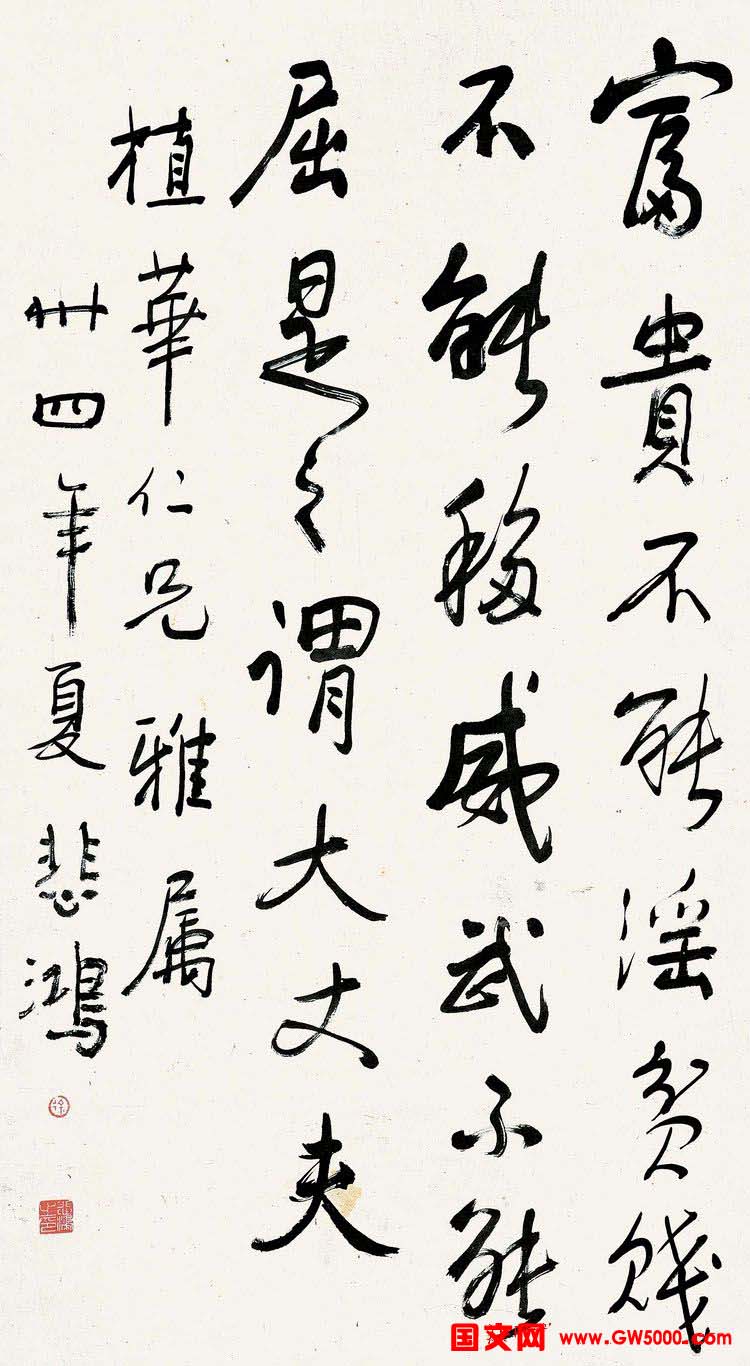 富貴不能淫貧賤
不能移威武不能
屈是之謂大丈夫
植華仁兄雅属
卅四年夏悲鴻
国文网 www.GW5000.com